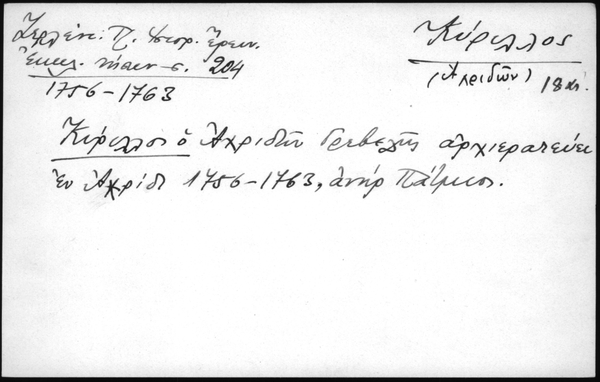 Ζερλέντ: Π. Ἱστορ. Ἔρευν.
Ἐκκλ. νήσων σ. 204
1756-1763
Κύριλλος
(Ἀχριδῶν) 18 αἰ.
Κύριλλος ὁ Ἀχριδῶν Γρεβελῆς ἀρχιερατεύει
ἐν Ἀχρίδι 1756-1763, ἀνὴρ Πάτμιος.